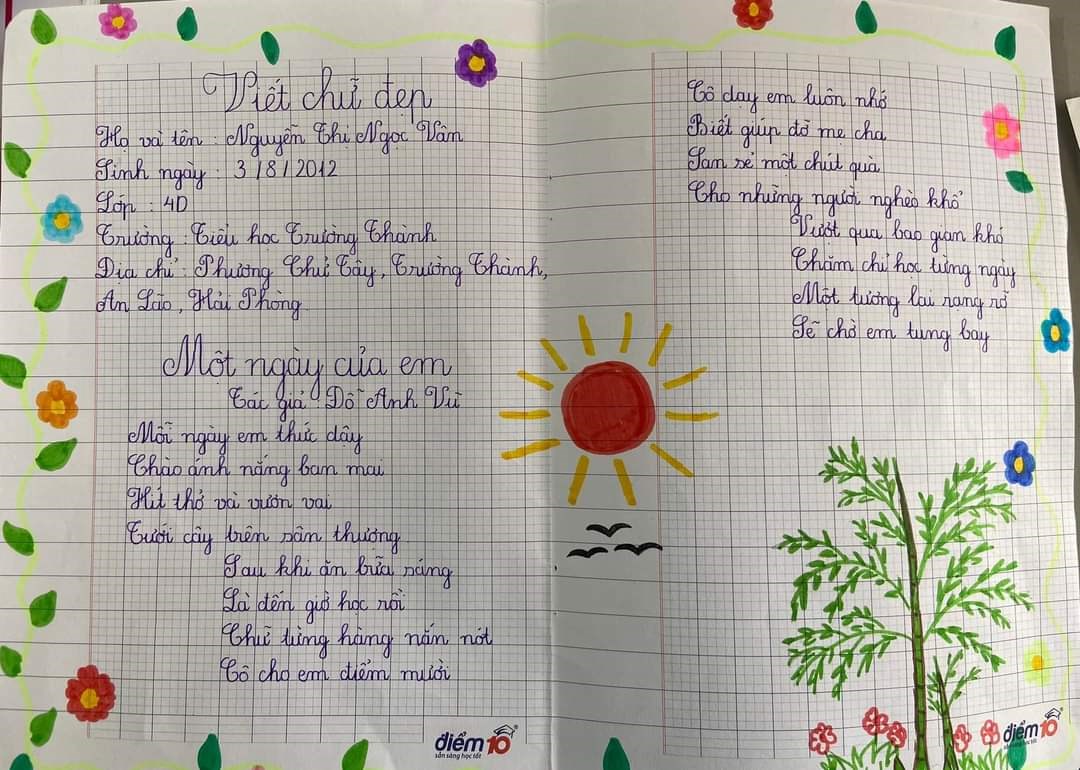 Viết chữ đẹp
Họ và tên : Nguyễn Thị Ngọc Vâm
Sinh ngày : 3 / 8 / 2012
Lớp : 4D
Trường : Tiểu học Trường Thành
Địa chỉ : Phương Chử Tây, Trường Thành,
An Lão, Hải Phòng.
Một ngày của em
Tác giả : Đỗ Anh Vũ
Mỗi ngày em thức dậy
Chào ánh nắng ban mai
Hít thở và vươn vai
Tưới cây trên sân thượng
Sau khi ăn bữa sáng
Là đến giờ học rồi
Chữ từng hàng nắn nót
Cô cho em điểm mười
điểm 10
sẵn sàng học tốt
Cô dạy em luôn nhớ
Biết giúp đỡ mẹ cha
San sẻ một chút quà
Cho những người nghèo khổ
Vượt qua bao gian khó
Chăm chỉ học từng ngày
Một tương lai rạng rỡ
Sẽ chờ em tung bay
điểm 10
sẵn sàng học tốt